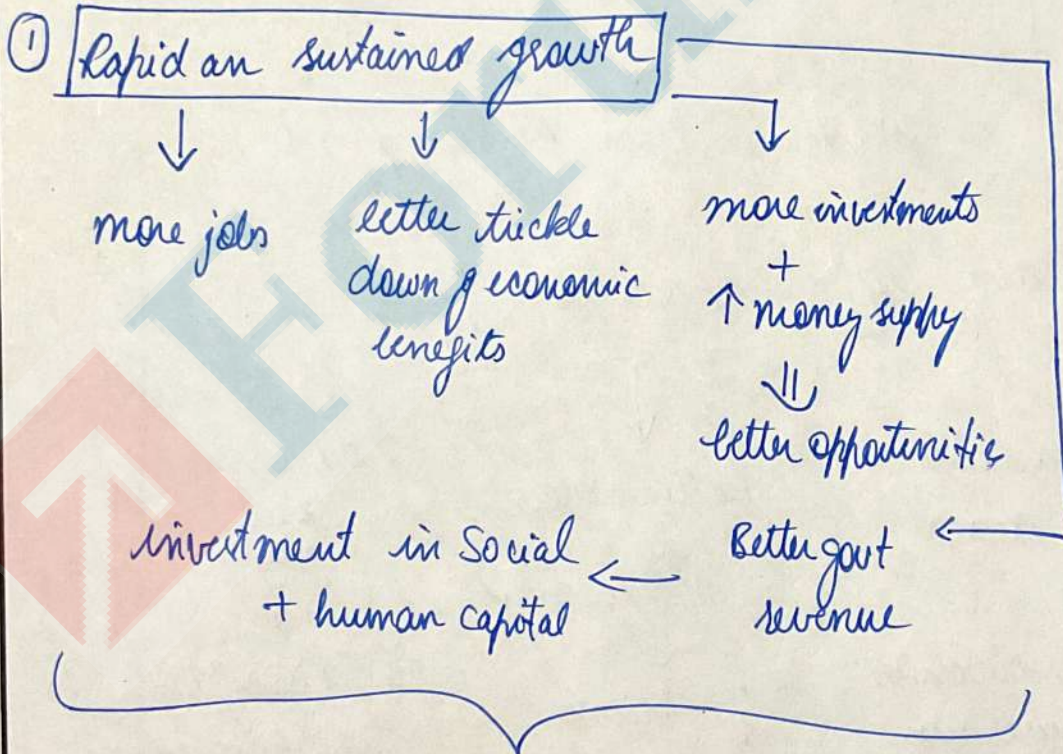 ① Rapid an sustained growth
more jobs
better trickle
down of economic
benefits
more investments
+
↑ money supply
better opportunities
Better govt
revenue
investment in Social
+ human capital
Foru